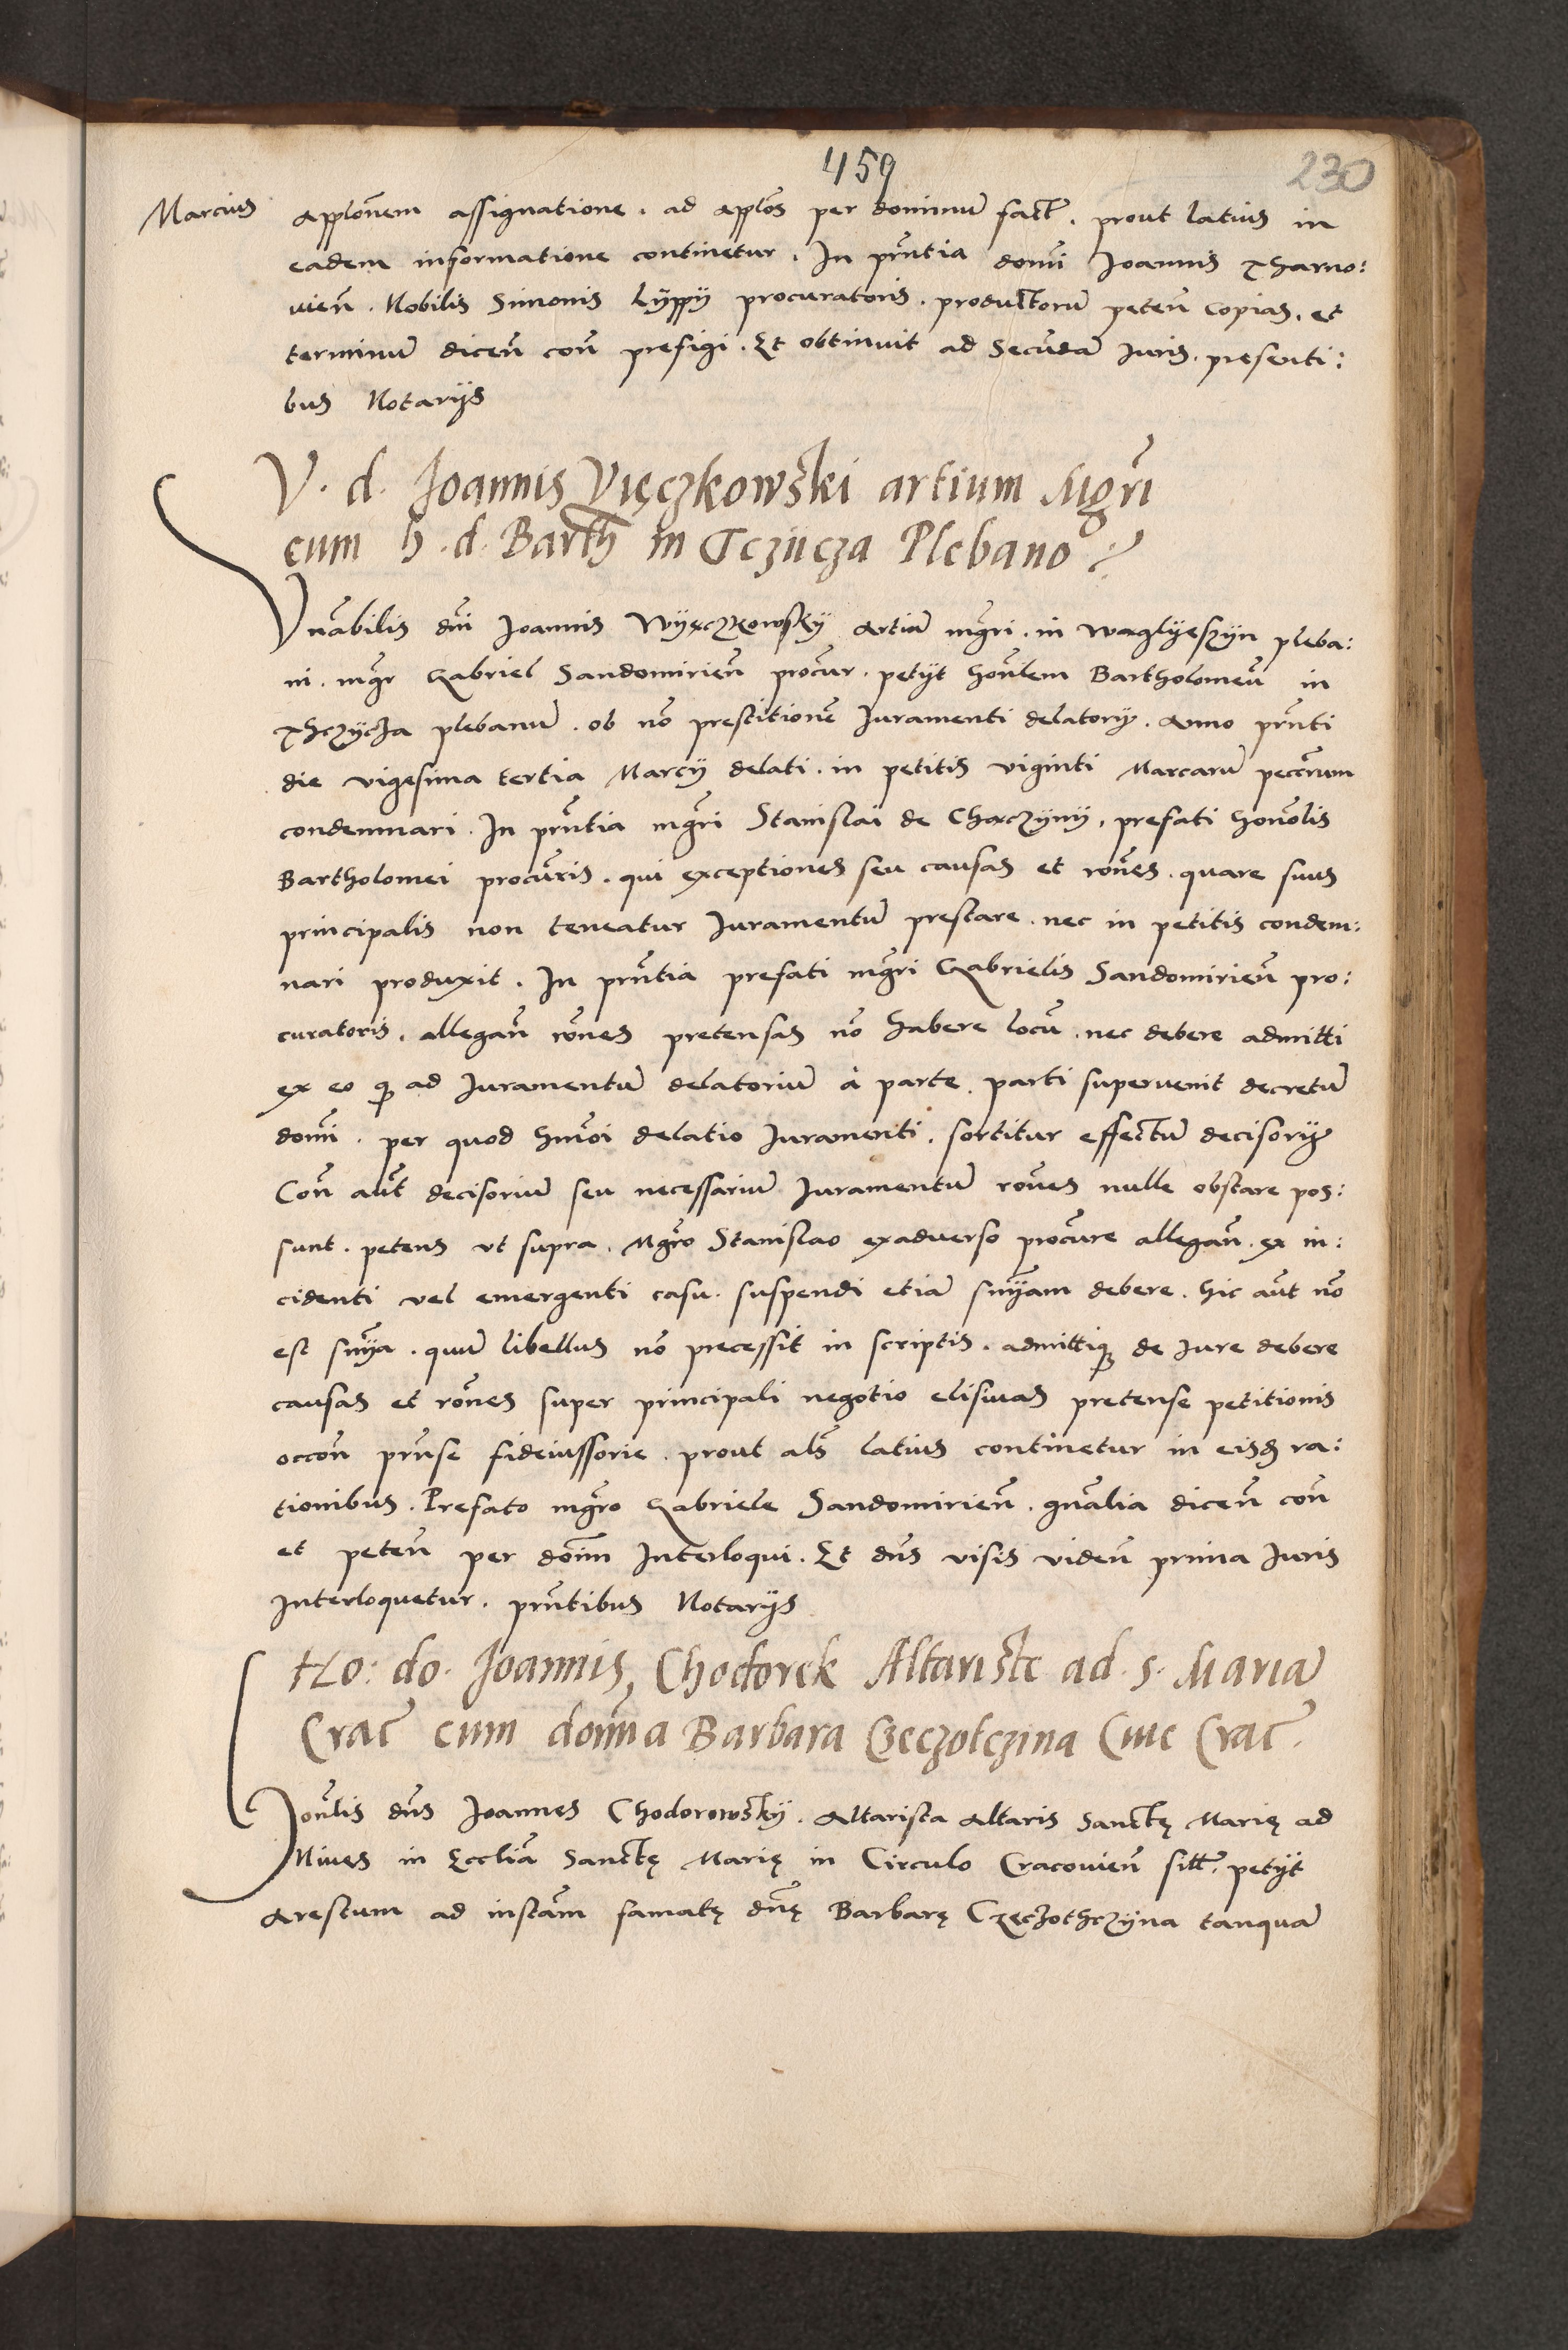 459
230
Marcius
applonem assignatione. ad aplos per dominum fact. prout latius in
eadem informatione continetur. In pntia domi Joannis Tharno:
vien. Nobilis Simonis Lyppy procuratoris. productorum peten copias. et
terminum dicen con prefigi. Et obtinuit ad Secundam Juris. presenti:
bus Notarijs
V. d. Joannis Vięczkowski artium Mgri
cum h. d. Barth in Tczticza Plebano
Vnabilis dni Joannis Wyęczkowsky Artium mgri. in Waglyeszyn pleba:
ni. mgr Gabriel Sandomirien procur. petijt honlem Bartholomeum in
Thczycza plebanum. ob no prestitionem Juramenti delatorij. Anno prnti
die vigesima tertia Marcij delati. in petitis viginti Marcarum peccnum
condemnari. In prntia mgri Stanislai de Chaczyny, prefati honolis
Bartholomei procuris. qui exceptiones seu causas et rones. quare suus
principalis non teneatur Juramentum prestare. nec in petitis condem:
nari produxit. In prntia prefati mgri Gabrielis Sandomirien pro:
curatoris. allegan rones pretensas no habere locum. nec debere admitti
ex eo q ad Juramentum delatorium à parte. parti supervenit decretum
domi. per quod hmoi delatio Juramenti. sortitur effectum decisorij
Con aut decisorium seu necessarium Juramentum rones nulle obstare pos:
sunt. petens vt supra. Mgro Stanislao exadverso procure allegan. ex in:
cidenti vel emergenti casu. suspendi etiam snyam debere. hic aut no
est snya. quum libellus no precessit in scriptis. admittiq de Jure debere
causas et rones super principali negotio elisivas pretense petitionis
occon prnse fideiussorie. prout als latius continetur in eisd ra:
tionibus. Prefato mgro Gabriele Sandomirien. gnalia dicen con
et peten per domm Interloqui. Et dns visis viden prima Juris
Interloquetur. prntibus Notarijs
Ho: do. Joannis Chodorek Altariste ad. s. Mariam
Crac cum domna Barbara Czeczotczina Cive Crac.
Honlis dns Joannes Chodorowsky. Altarista Altaris Sanctę Marię ad
Nives in Ecclia Sanctę Marię in Circulo Cracovien sitt. petijt
Arestum ad instam famatę dnę Barbarę Czeczothczyna tanquam